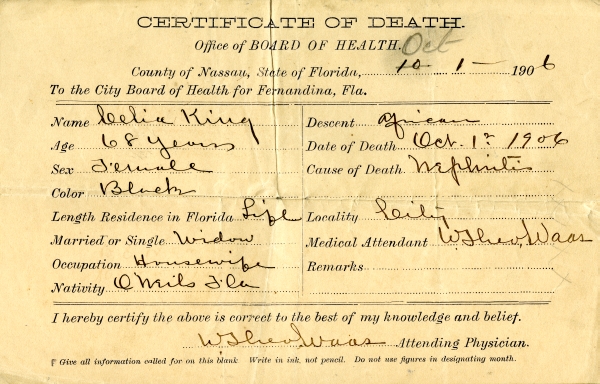 CERTIFICATE OF DEATH.
Office of BOARD OF HEALTH.
Oct
County of Nassau, State of Florida, 10 1 - 1906
To the City Board of Health for Fernandina, Fla.
Name Celia King
Age 68 Years
Sex Female
Color Black
Length Residence in Florida Life
Married or Single Widow
Occupation Housewife
Nativity O'Neils Fla
Descent African
Date of Death Oct. 1st 1906
Cause of Death Nephritis
Locality City
Medical Attendant W Theo. Waas
Remarks
I hereby certify the above is correct to the best of my knowledge and belief.
W Theo. Waas Attending Physician.
Give all information called for on this blank Write in ink, not pencil. Do not use figures in designating month.